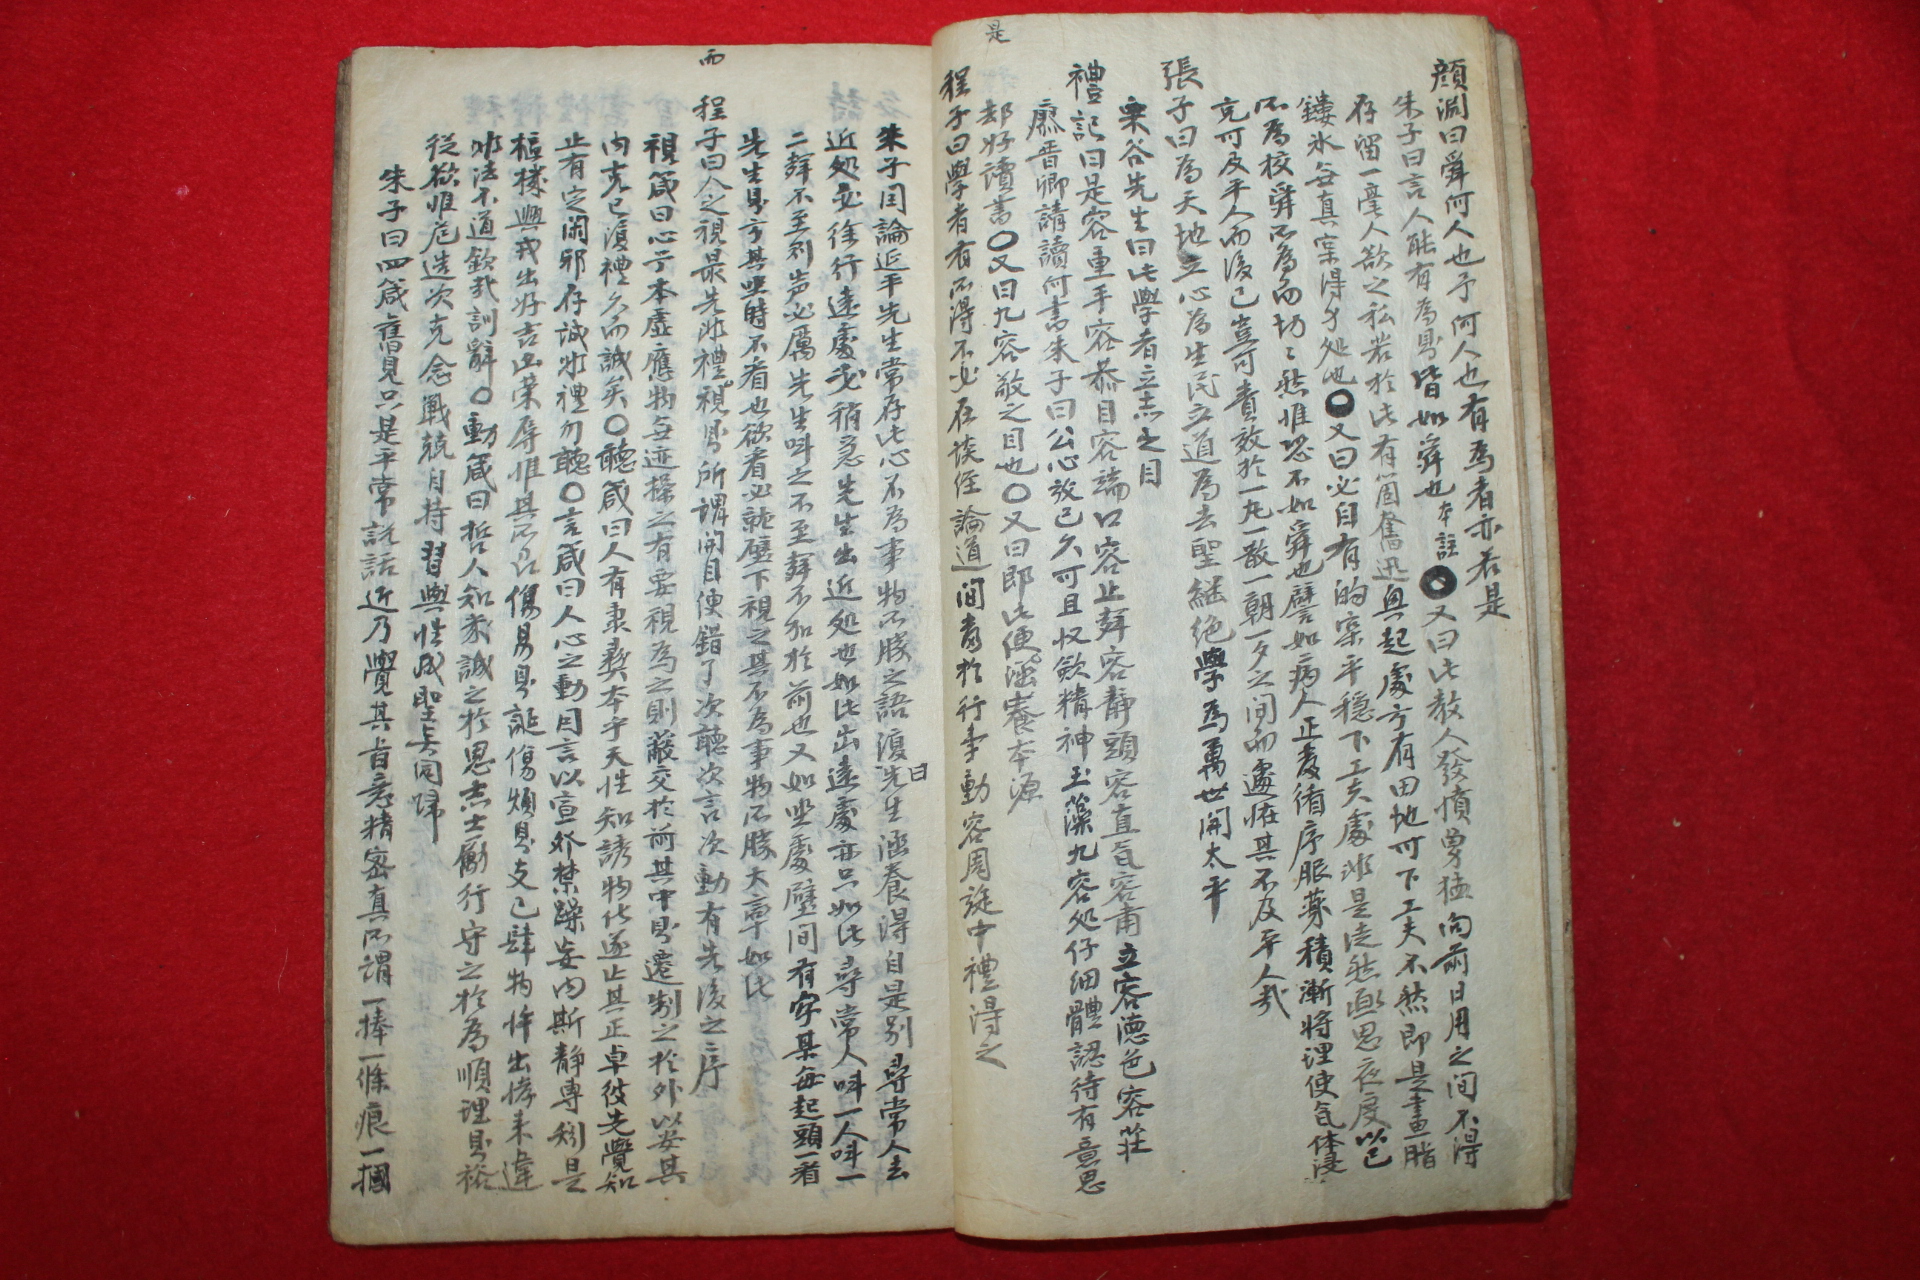 顔淵曰舜何人也予何人也有為者亦若是
朱子曰言人能有為則皆如舜也本註〇又曰此教人發憤勇猛向前日用之間不得
存留一毫人欲之私若於此有箇奮迅興起處方有田地可下工夫不然即是畫脂
鏤氷無真実得力処也〇又曰必自有的実平穏下工夫處非是徒然晝思夜度以已
不為校舜所為而切〻然惟恐不如舜也譬如病人正要循序服薬積漸将理使気体浸
充可及平人而後已豈可責效於一丸一散一朝一夕之間而遽恠其不及平人哉
張子曰為天地立心為生民立道為去聖継絶學為萬世開太平
栗谷先生曰此學者立志之目
禮記曰足容重手容恭目容端口容止聲容静頭容直気容肅立容徳色容莊
廖晋卿請讀何書朱子曰公心放已久可且収斂精神玉藻九容処仔細體認待有意思
却好讀書〇又曰九容敬之目也〇又曰即此便是涵養本源
程子曰學者有所得不必在談経論道間當於行事動容周旋中禮得之
是
而
朱子曰論延平先生常存此心不為事物所勝之語復曰先生涵養得自是別尋常人去
近処必徐行遠處必稍急先生出近処也如此出遠處亦只如此尋常人呌一人呌一
二聲不至則声必厲先生呌之不至聲不加於前也又如坐處壁間有字某每起頭一看
先生則方其坐時不看也欲看必就壁下視之其不為事物所勝大率如此
程子曰人之視最先非禮視則所謂開目便錯了次聽次言次動有先後之序
視箴曰心兮本虛應物無迹操之有要視為之則蔽交於前其中則遷制之於外以安其
内克已復禮久而誠矣〇聽箴曰人有秉彝本乎天性知誘物化遂亡其正卓彼先覺知
止有定閑邪存誠非禮勿聽〇言箴曰人心之動因言以宣発禁躁妄内斯静專矧是
樞機興戎出好吉凶榮辱惟其所召傷易則誕傷煩則支已肆物忤出悖来違
非法不道欽哉訓辭〇動箴曰哲人知幾誠之於思志士勵行守之於為順理則裕
従欲惟危造次克念戰兢自持習與性成聖賢同歸
朱子曰四箴舊見只是平常説話近乃覺其旨意精密真所謂一棒一條痕一摑